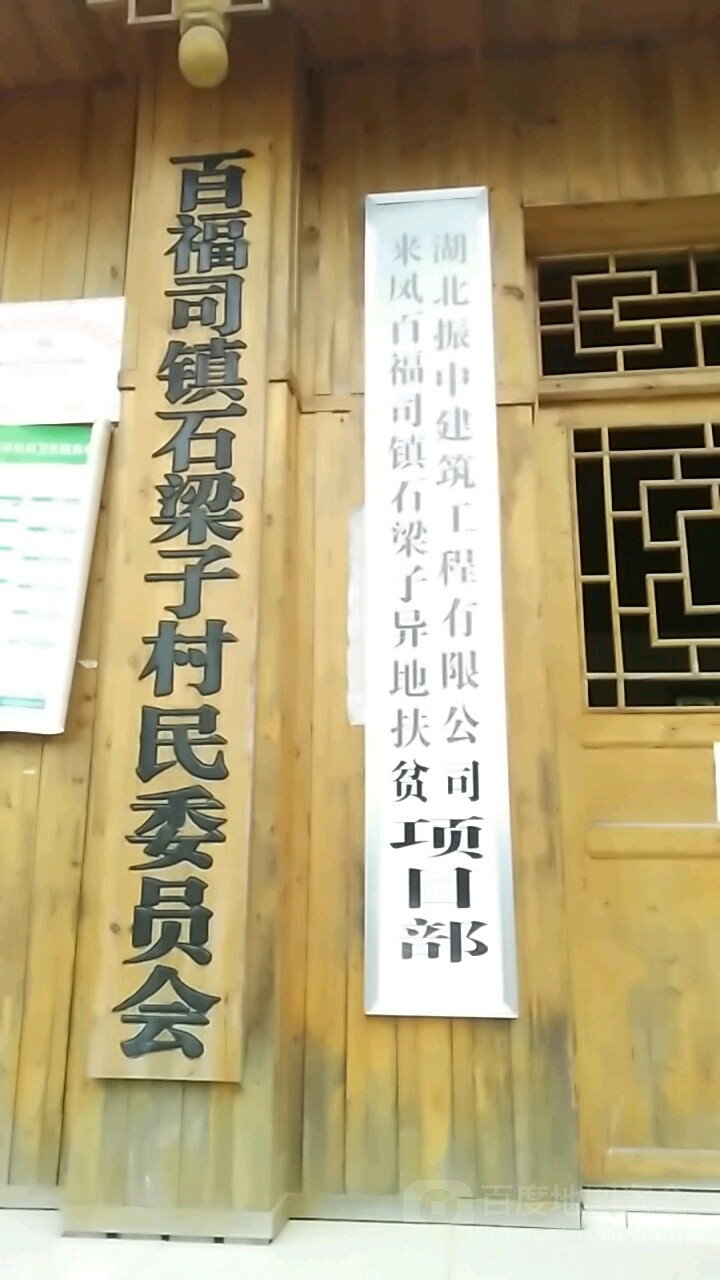 百福司镇石梁子村民委员会
湖北振中建筑工程有限公司
来凤百福司镇石梁子异地扶贫
项目部
百度地图